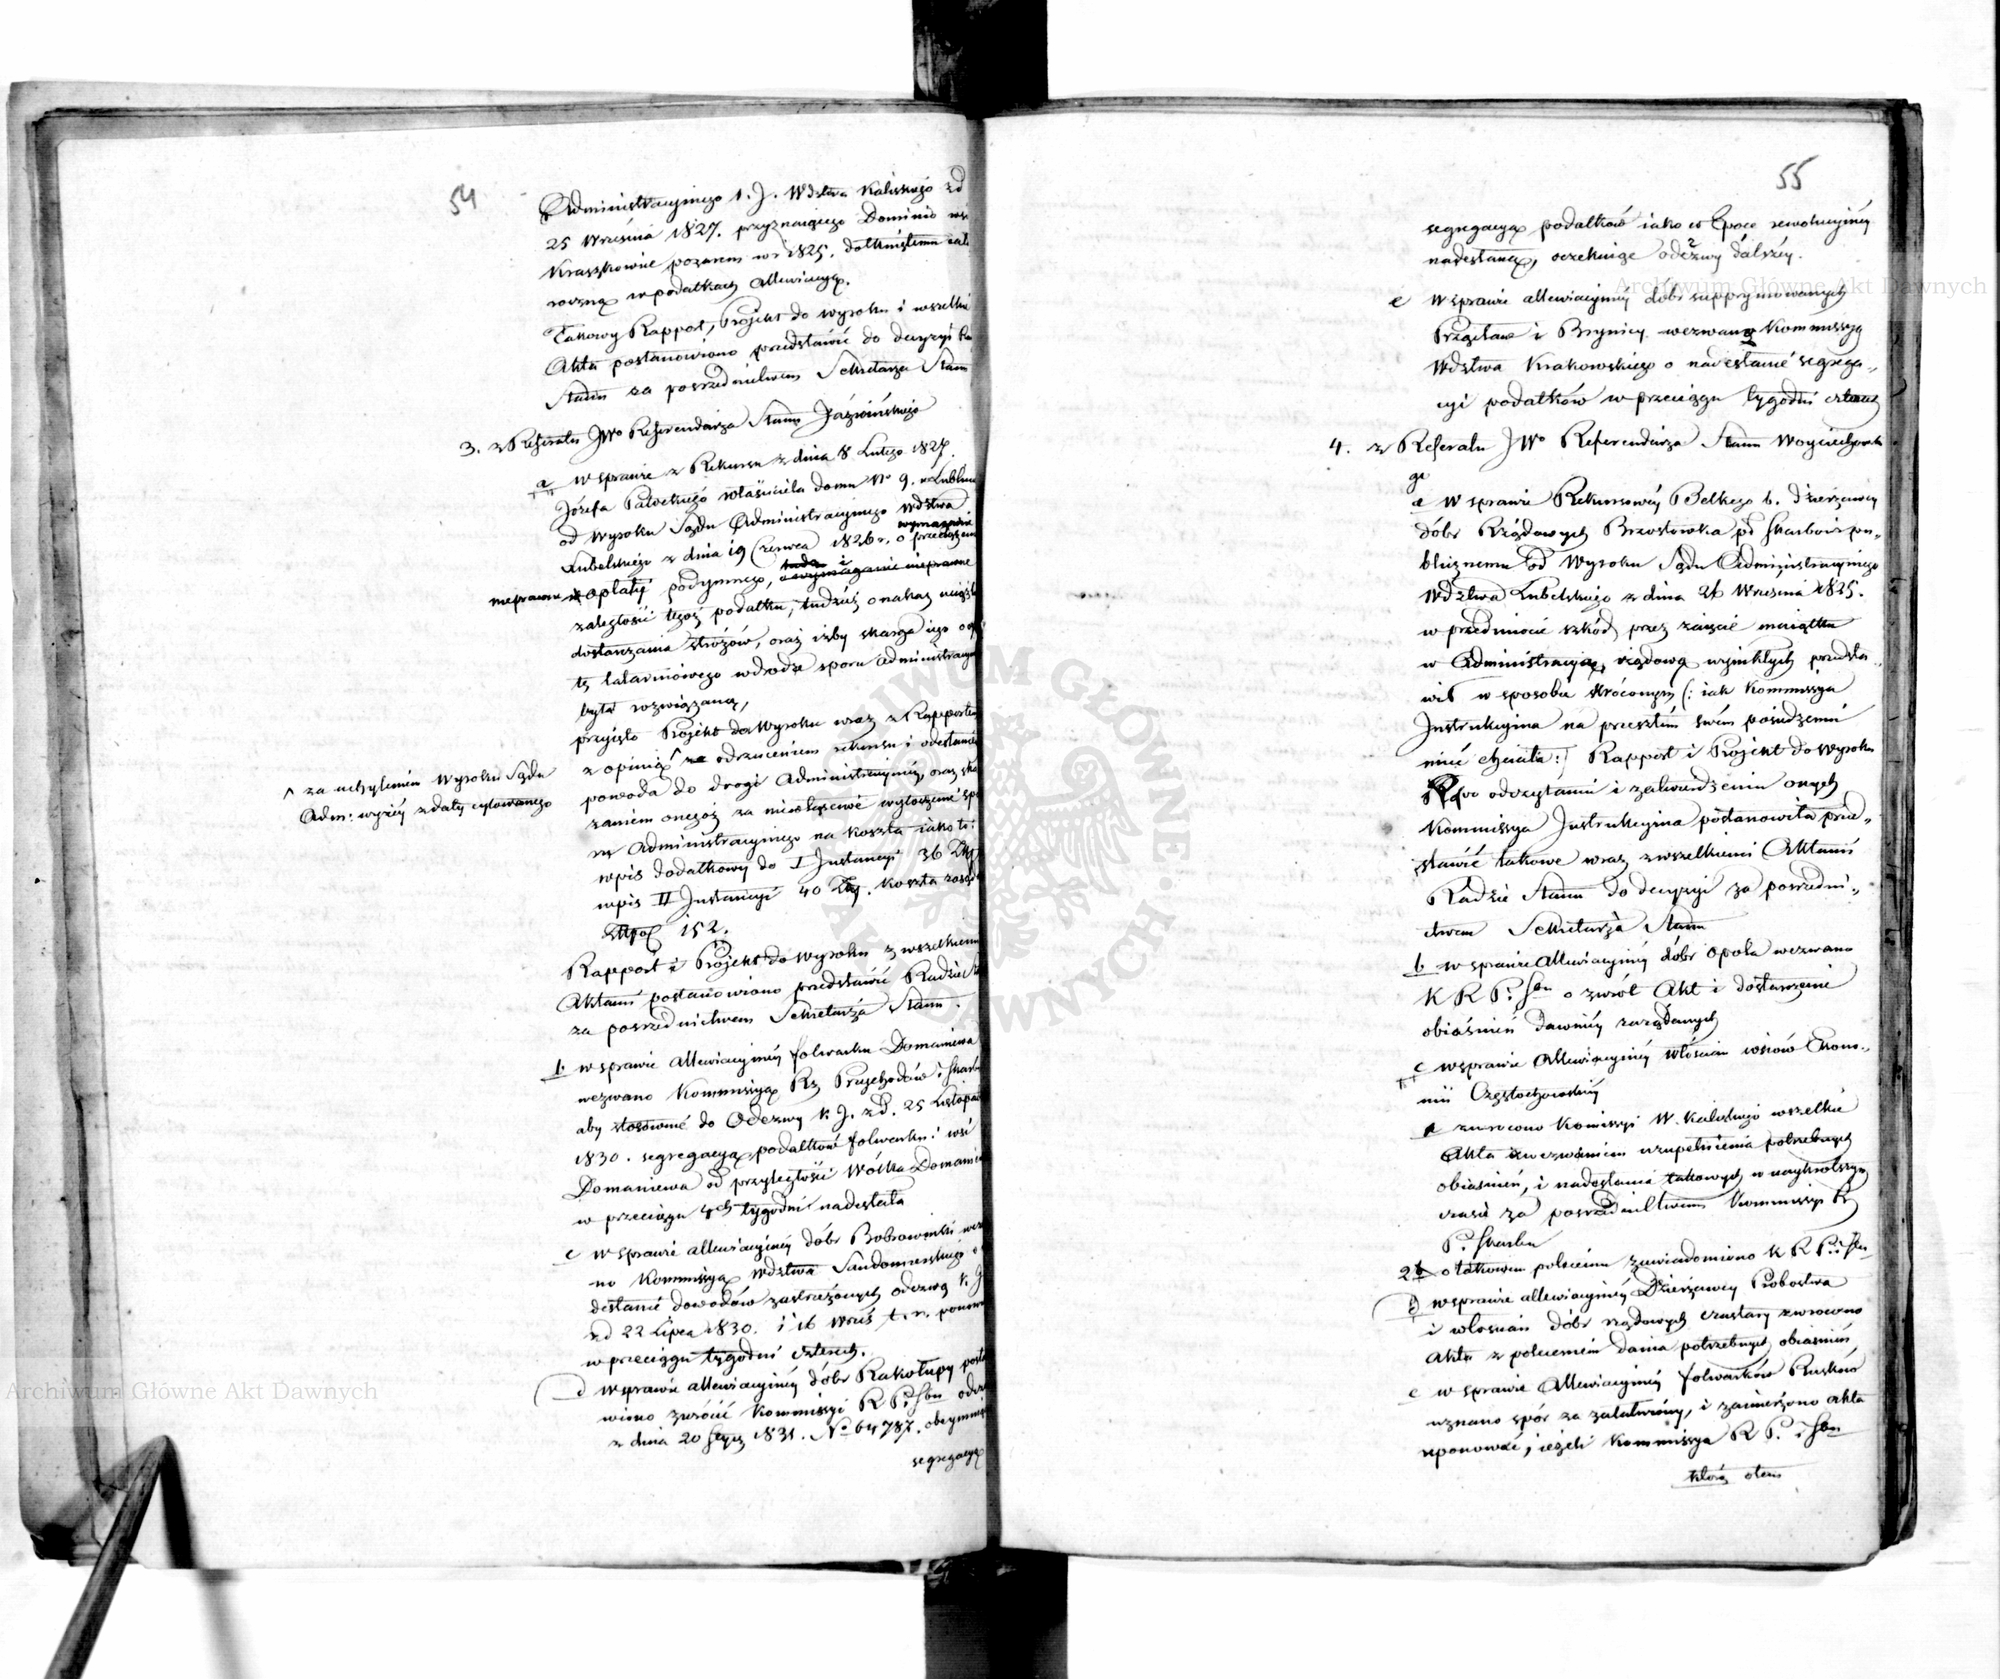 54
Administracyinego I. J. Wdztwa Kaliskiego zd
25 Września 1827. przyznaiącego Dominio wsi
Kraszkowice pożarem w r 1825. dotkniętemu cało
roczną w podatkach allewiacyą.
Takowy Rapport, Projekt do wyroku i wszelkie
Akta postanowiono przedstawić do decyzyi Ra
Stanu za pośrednictwem Sekretarza Stanu
3. z Referatu JWo Referendarza Stanu Jaźwińskiego
a w sprawie z Rekursu z dnia 8 Lutego 1827.
Józefa Pałeckiego właściciela domu No 9. w Lublinie
od Wyroku Sądu Administracyinego Wdztwa
Lubelskiego z dnia 19 Czerwca 1826 r. o
nieprawne opłaty podymnego,
zaległość tegoż podatku, tudzież o nakaz
dostarczania stróżów, oraz iżby skarga iego o op
tę latarniowego w drodze sporu administracyi
była rozwiązaną,
przyięto Projekt do Wyroku wraz z Rapportem
z opinią ^ odrzuceniem rekursu i odesłaniem
^ za uchyleniem Wyroku Sądu
Adm: wyżéy z daty cytowanego
powoda do drogi Administracyinéy, oraz ska
zaniem onegoż za niewłaściwe wytoczenie spo
ru Administracyinego na koszta iako to:
wpis dodatkowy do I Instancyi 36 Złp
wpis II Instancyi 40 Złp. Koszta
152.
Rapport i Projekt do Wyroku z wszelkiemi
Aktami postanowiono przedstawić Radzie
za pośrednictwem Sekretarza Stanu.
b w sprawie allewiacyinéy folwarku Domaniewa
wezwano Kommissyą Rz Przychodów i Skarbu
aby stosownie do Odezwy K. J. z d. 25 Listopada
1830. segregacyą podatków folwarku i wsi
Domaniewa od przyległości Wólka Domaniew
w przeciągu 4ch tygodni nadesłała
c w sprawie allewiacyinéy dóbr Bobrowniki wezwa
no Kommissyą Wdztwa Sandomierskiego o
desłanie dowodów zastrzeżonych odezwą K. J
zd 22 Lipca 1830. i 16 Wrześ t. r.
w przeciągu tygodni czterech.
d w sprawie allewiacyinéy dóbr Rakołupy posta
wiono zwrócić Kommissyi R P. i Sbu odez
z dnia 20 Stycz 1831. No 64787. obeymuią
segregacyą
55
segregacyą podatków iako w Epoce rewolucyinéy
nadesłaną, oczekuiąc odezwy dálszéy.
e w sprawie allewiacyinéy dóbr supprymowanych
i Brynicy wezwano Kommissyą
Wdztwa Krakowskiego o nadesłanie segrega„
cyi podatków w przeciągu tygodni czterech
4. z Referatu JWo Referendarza Stanu Woyciechowsk
go
a w sprawie Rekursowéy Belkego b. dzierżawcy
dóbr Rządowych Brzostówka pko Skarbowi pu„
blicznemu od Wyroku Sądu Administracyinego
Wdztwa Lubelskiego z dnia 26 Września 1825.
w przedmiocie szkód przez zaięcie maiątku
w Administracyą rządową wynikłych przedsta„
wił w sposobie skróconym (: iak Kommissya
Instrukcyina na przeszłém swém posiedzeniu
mieć chciała:) Rapport i Projekt do Wyroku
Po odczytaniu i zatwierdzeniu onych
Kommissya Instrukcyina postanowiła prze„
stawić takowe wraz z wszelkiemi Aktami
Radzie Stanu do decyzyi za pośredni„
ctwem Sekretarza Stanu
b w sprawie allewiacyinéy dóbr Opola wezwano
K R P. i Sbu o zwrót Akt i dostarczenie
obiaśnień dawniéy zażądanych
c w sprawie Allewiacyinéy włościan wsiów Ekono„
mii Częstochowskiéy
zwrócono Komissyi W. Kaliskiego wszelkie
Akta z wezwaniem uzupełnienia potrzebnych
obiaśnień, i nadesłania takowych w naykrótszym
czasie za pośrednictwem Kommissyi Rz
P. i Skarbu
2 o takowem poleceniu zawiadomiono K R P. i Sbu
d w sprawie allewiacyinéy Dzierżawcy Probostwa
i włoscian dóbr rządowych Czustary zwrocono
Akta z poleceniem dania potrzebnych obiaśnień
e w sprawie Allewiacyinéy folwarków Rusków
uznano spór za załatwiony, i zamierzono akta
reponować, ieżeli Kommissya R P. i Sbu
któréy o tem